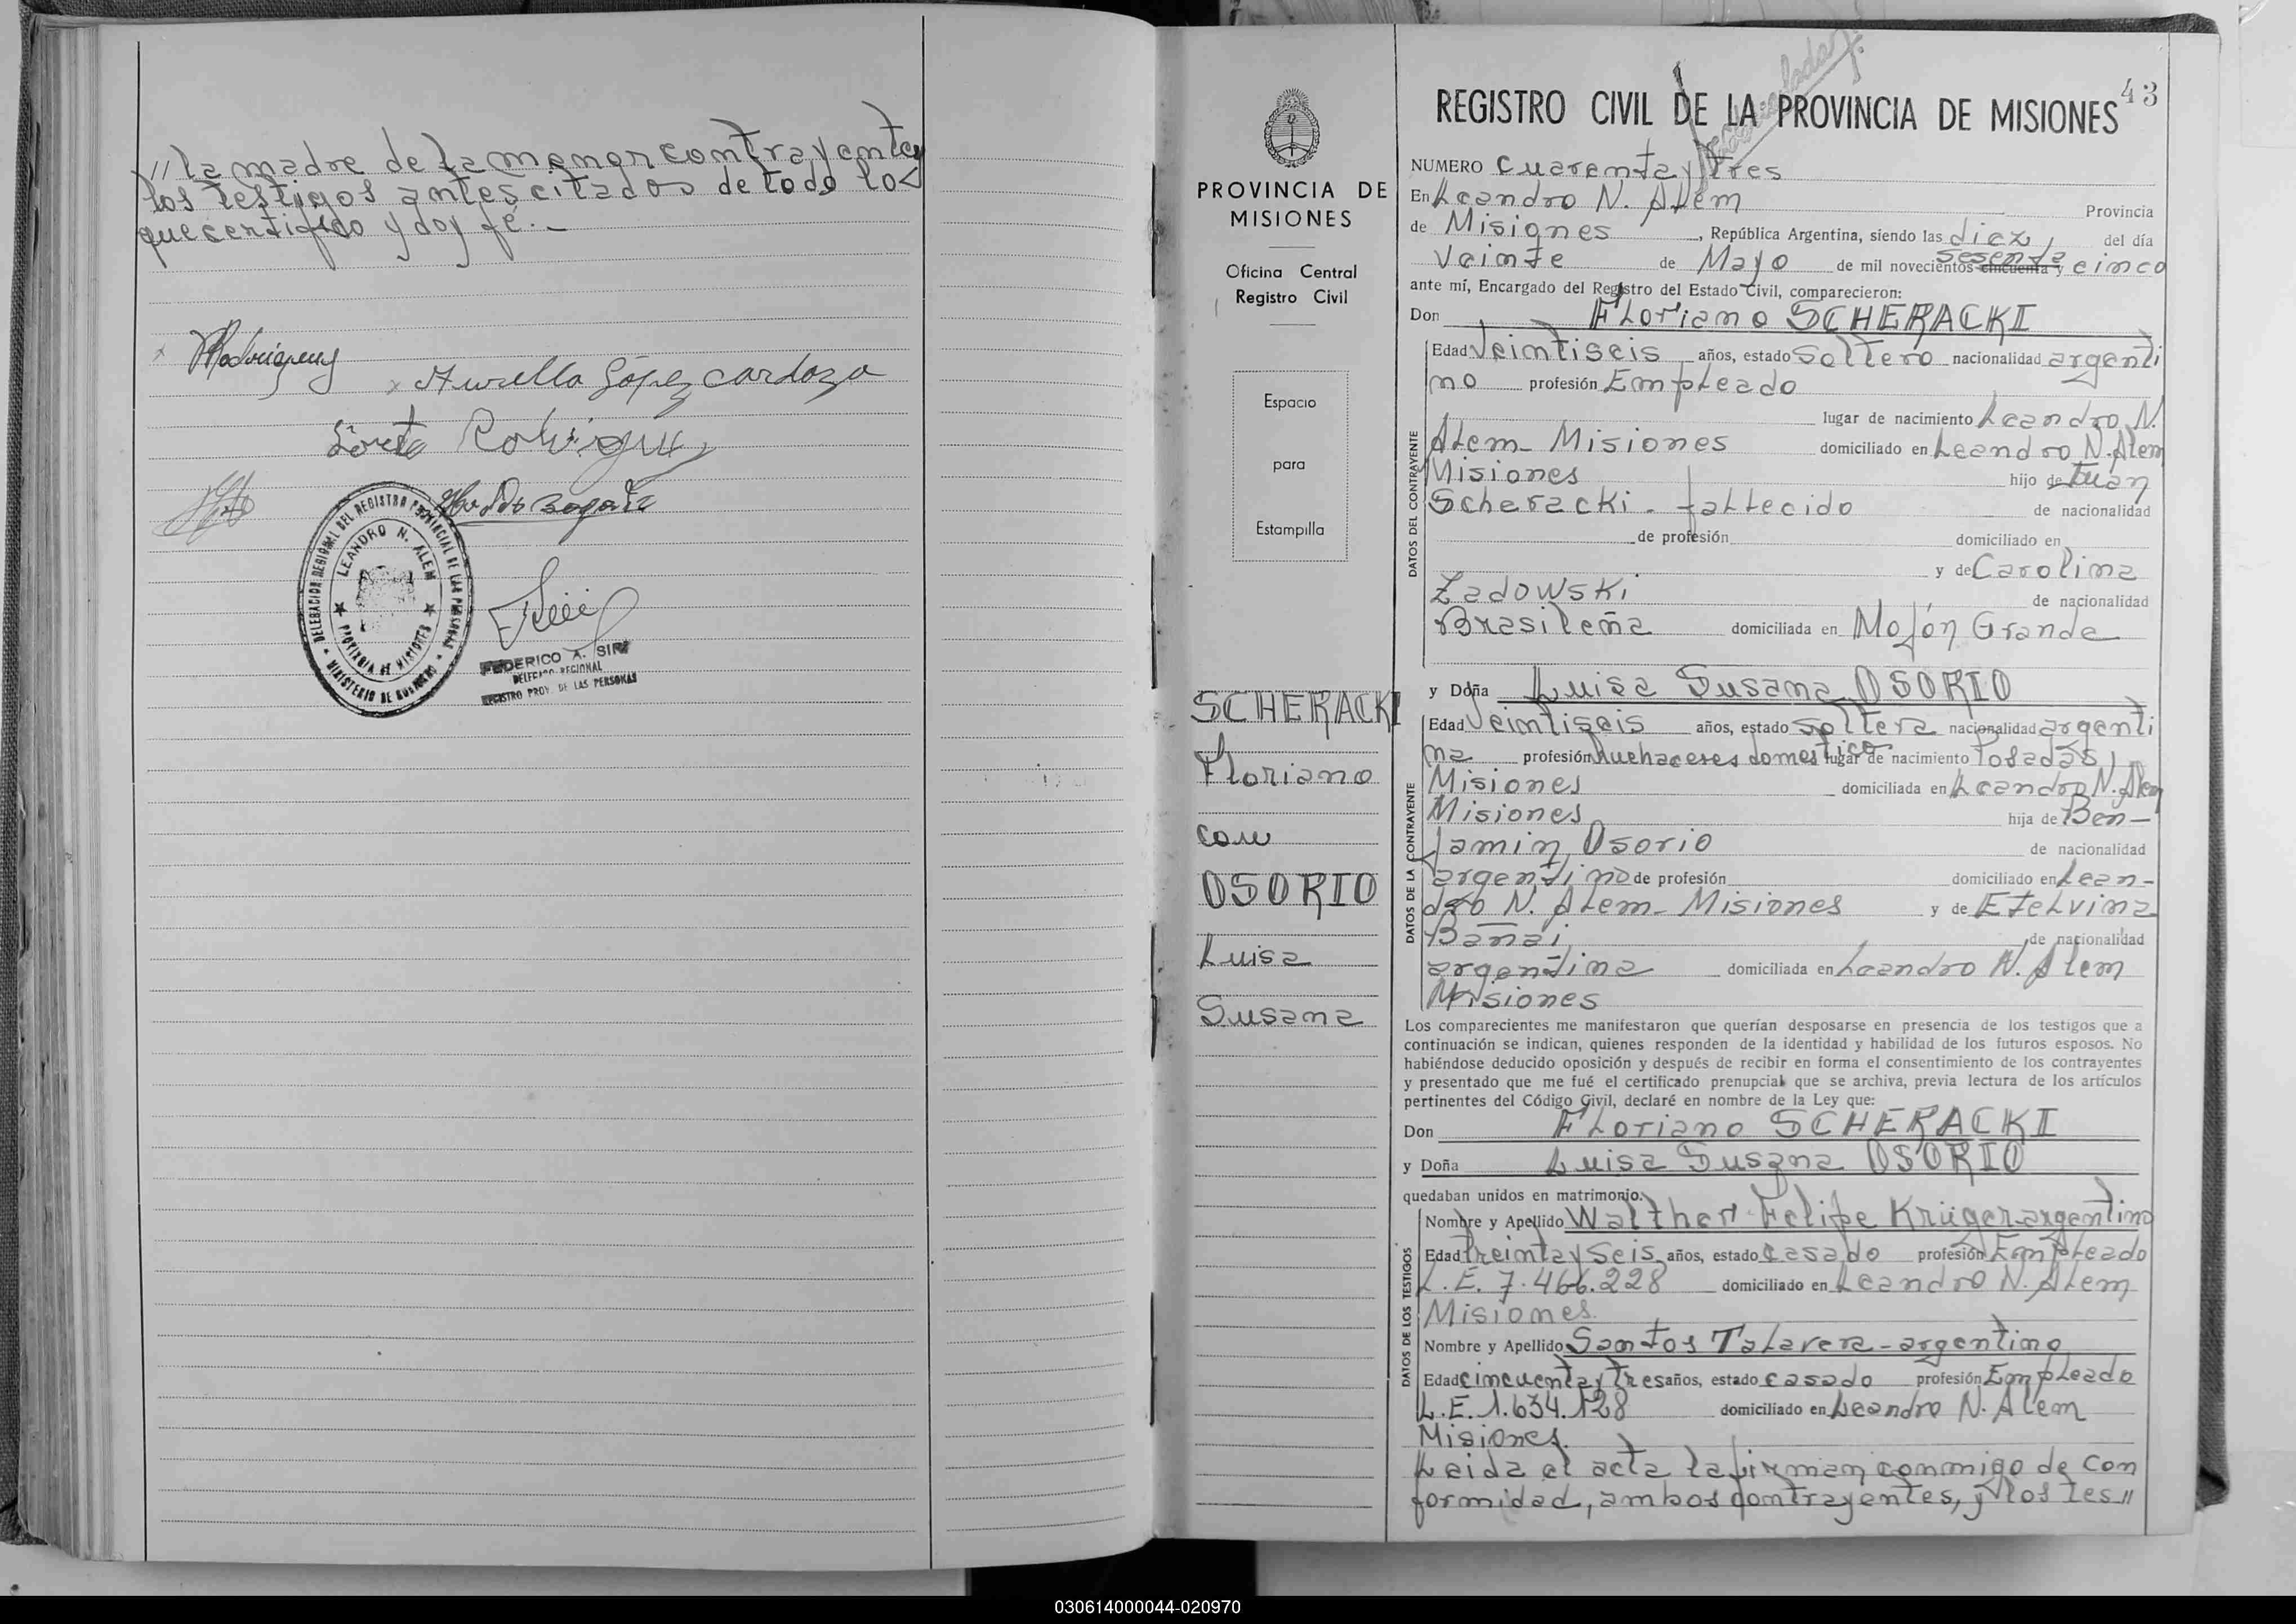 // la madre de la menor contrayente y
los testigos antes citados de todo lo
que certifico y doy fé.-
Aurella López Cardozo
DELEGACION REGIONAL DEL REGISTRO PROVINCIAL DE LAS PERSONAS
LEANDRO N. ALEM
PROVINCIA DE MISIONES
MINISTERIO DE GOBIERNO
FEDERICO A. SIRI
DELEGADO REGIONAL
REGISTRO PROV. DE LAS PERSONAS
PROVINCIA DE
MISIONES
Oficina Central
Registro Civil
Espacio
para
Estampilla
SCHERACKI
Floriano
con
OSORIO
Luisa
Susana
43
REGISTRO CIVIL DE LA PROVINCIA DE MISIONES
NUMERO Cuarenta y tres
En Leandro N. Alem Provincia
de Misiones, República Argentina, siendo las diez, del día
Veinte de Mayo de mil novecientos cincuenta sesenta y cinco
ante mí, Encargado del Registro del Estado Civil, comparecieron:
Don Floriano SCHERACKI
DATOS DEL CONTRAYENTE
Edad Veintiseis años, estado soltero nacionalidad argenti
no profesión Empleado
lugar de nacimiento Leandro N.
Alem- Misiones domiciliado en Leandro N. Alem
Misiones hijo de Juan
Scheracki - fallecido de nacionalidad
de profesión domiciliado en
y de Carolina
Zadowski de nacionalidad
Brasileña domiciliada en Mojón Grande
y Doña Luisa Susana OSORIO
DATOS DE LA CONTRAYENTE
Edad Veintiseis años, estado soltera nacionalidad argenti
na profesión huehaceres domestico lugar de nacimiento Posadas,
Misiones domiciliada en Leandro N. Alem
Misiones hija de Ben-
jamin Osorio de nacionalidad
argentino de profesión domiciliado en Lean-
dro N. Alem- Misiones y de Etelvina
Bañai de nacionalidad
argentina domiciliada en Leandro N. Alem
Misiones
Los comparecientes me manifestaron que querían desposarse en presencia de los testigos que a
continuación se indican, quienes responden de la identidad y habilidad de los futuros esposos. No
habiéndose deducido oposición y después de recibir en forma el consentimiento de los contrayentes
y presentado que me fué el certificado prenupcial que se archiva, previa lectura de los artículos
pertinentes del Código Civil, declaré en nombre de la Ley que:
Don Floriano SCHERACKI
y Doña Luisa Susana OSORIO
quedaban unidos en matrimonio.
DATOS DE LOS TESTIGOS
Nombre y Apellido Walther Felipe Krüger argentino
Edad treinta y seis años, estado casado profesión Empleado
L.E. 7.466.228 domiciliado en Leandro N. Alem
Misiones.
Nombre y Apellido Santos Talavera - argentino
Edad cincuenta y tres años, estado casado profesión Empleado
L.E. 1.634.128 domiciliado en Leandro N. Alem
Misiones.
Leida el acta la firman conmigo de con
formidad, ambos contrayentes, y los tes//
030614000044-020970